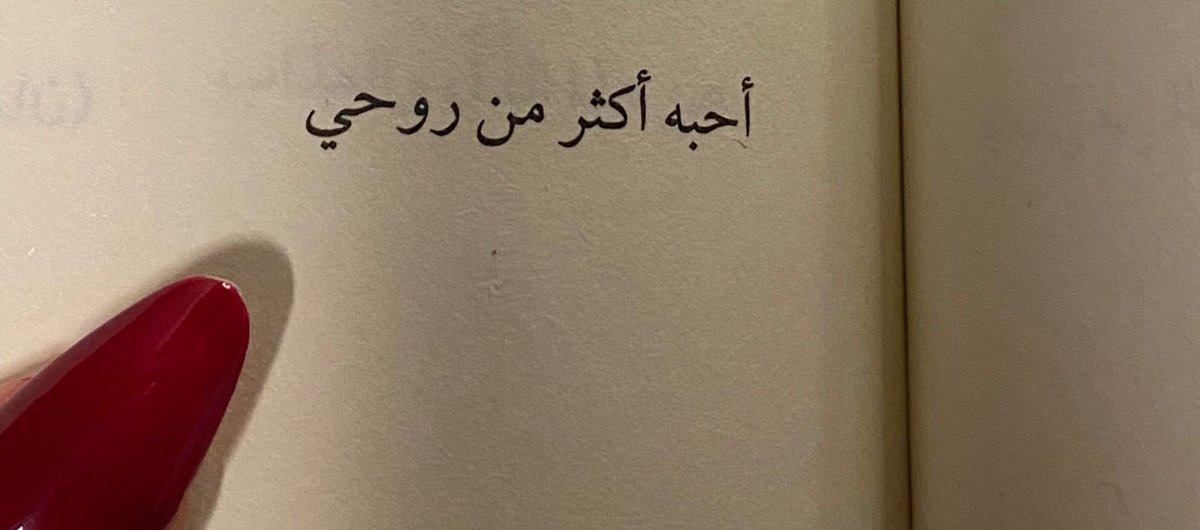 أحبه أكثر من روحي